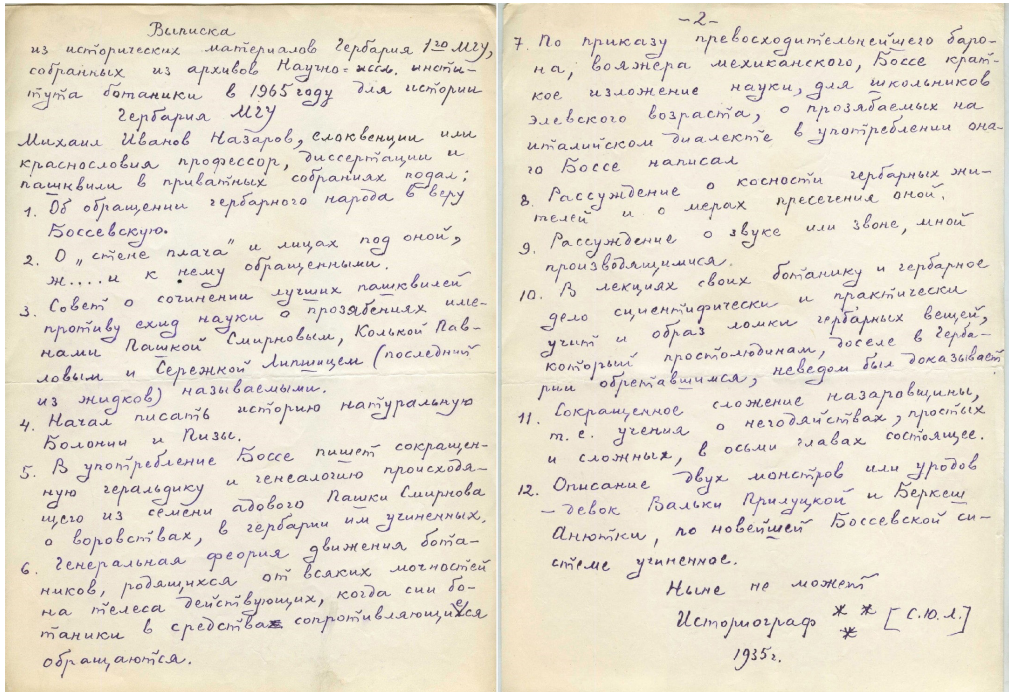 Выписка
из исторических материалов Гербария 1го МГУ,
собранных из архивов Научно=иссл. инсти-
тута ботаники в 1965 году для истории
Гербария МГУ
Михаил Иванов Назаров, елоквенции или
краснословия профессор, диссертации и
пашквили в приватных собраниях подал:
1. Об обращении гербарного народа в веру
Боссевскую.
2. О „стене плача" и лицах под оной,
ж....и к нему обращенными.
3. Совет о сочинении лучших пашквилей
противу ехид науки о прозябениях име-
нами Пашкой Смирновым, Колькой Пав-
ловым и Сережкой Липшицем (последний
из жидков) называемыми.
4. Начал писать историю натуральную
Болонии и Пизы.
5. В употребление Боссе пишет сокращен-
ную геральдику и генеалогию происходя-
щего из семени адового Пашки Смирнова
о воровствах, в гербарии им учиненных.
6. Генеральная феория движения бота-
ников, родящихся от всяких мочностей
на телеса действующих, когда сии бо-
таники в средства сопротивляющиеся
обращаются.
-2-
7. По приказу превосходительнейшего баро-
на, вояжера мехиканского, Боссе крат-
кое изложение науки, для школьников
элевского возраста, о прозябаемых на
италийском диалекте в употреблении она-
го Боссе написал
8. Рассуждение о косности гербарных жи-
телей и о мерах пресечения оной.
9. Рассуждение о звуке или звоне, мной
производящимися.
10. В лекциях своих ботанику и гербарное
дело сциентифически и практически
учит и образ ломки гербарных вещей,
который простолюдинам, доселе в Герба-
рии обретавшимся, неведом был доказывает
11. Сокращенное сложение назаровщины,
т.е. учения о негодяйствах, простых
и сложных, в осьми главах состоящее.
12. Описание двух монстров или уродов
– девок Вальки Прилуцкой и Беркеш
Анютки, по новейшей Боссевской си-
стеме учиненное.
Ныне не может
Историограф * * * [С.Ю.Л.]
1935г.